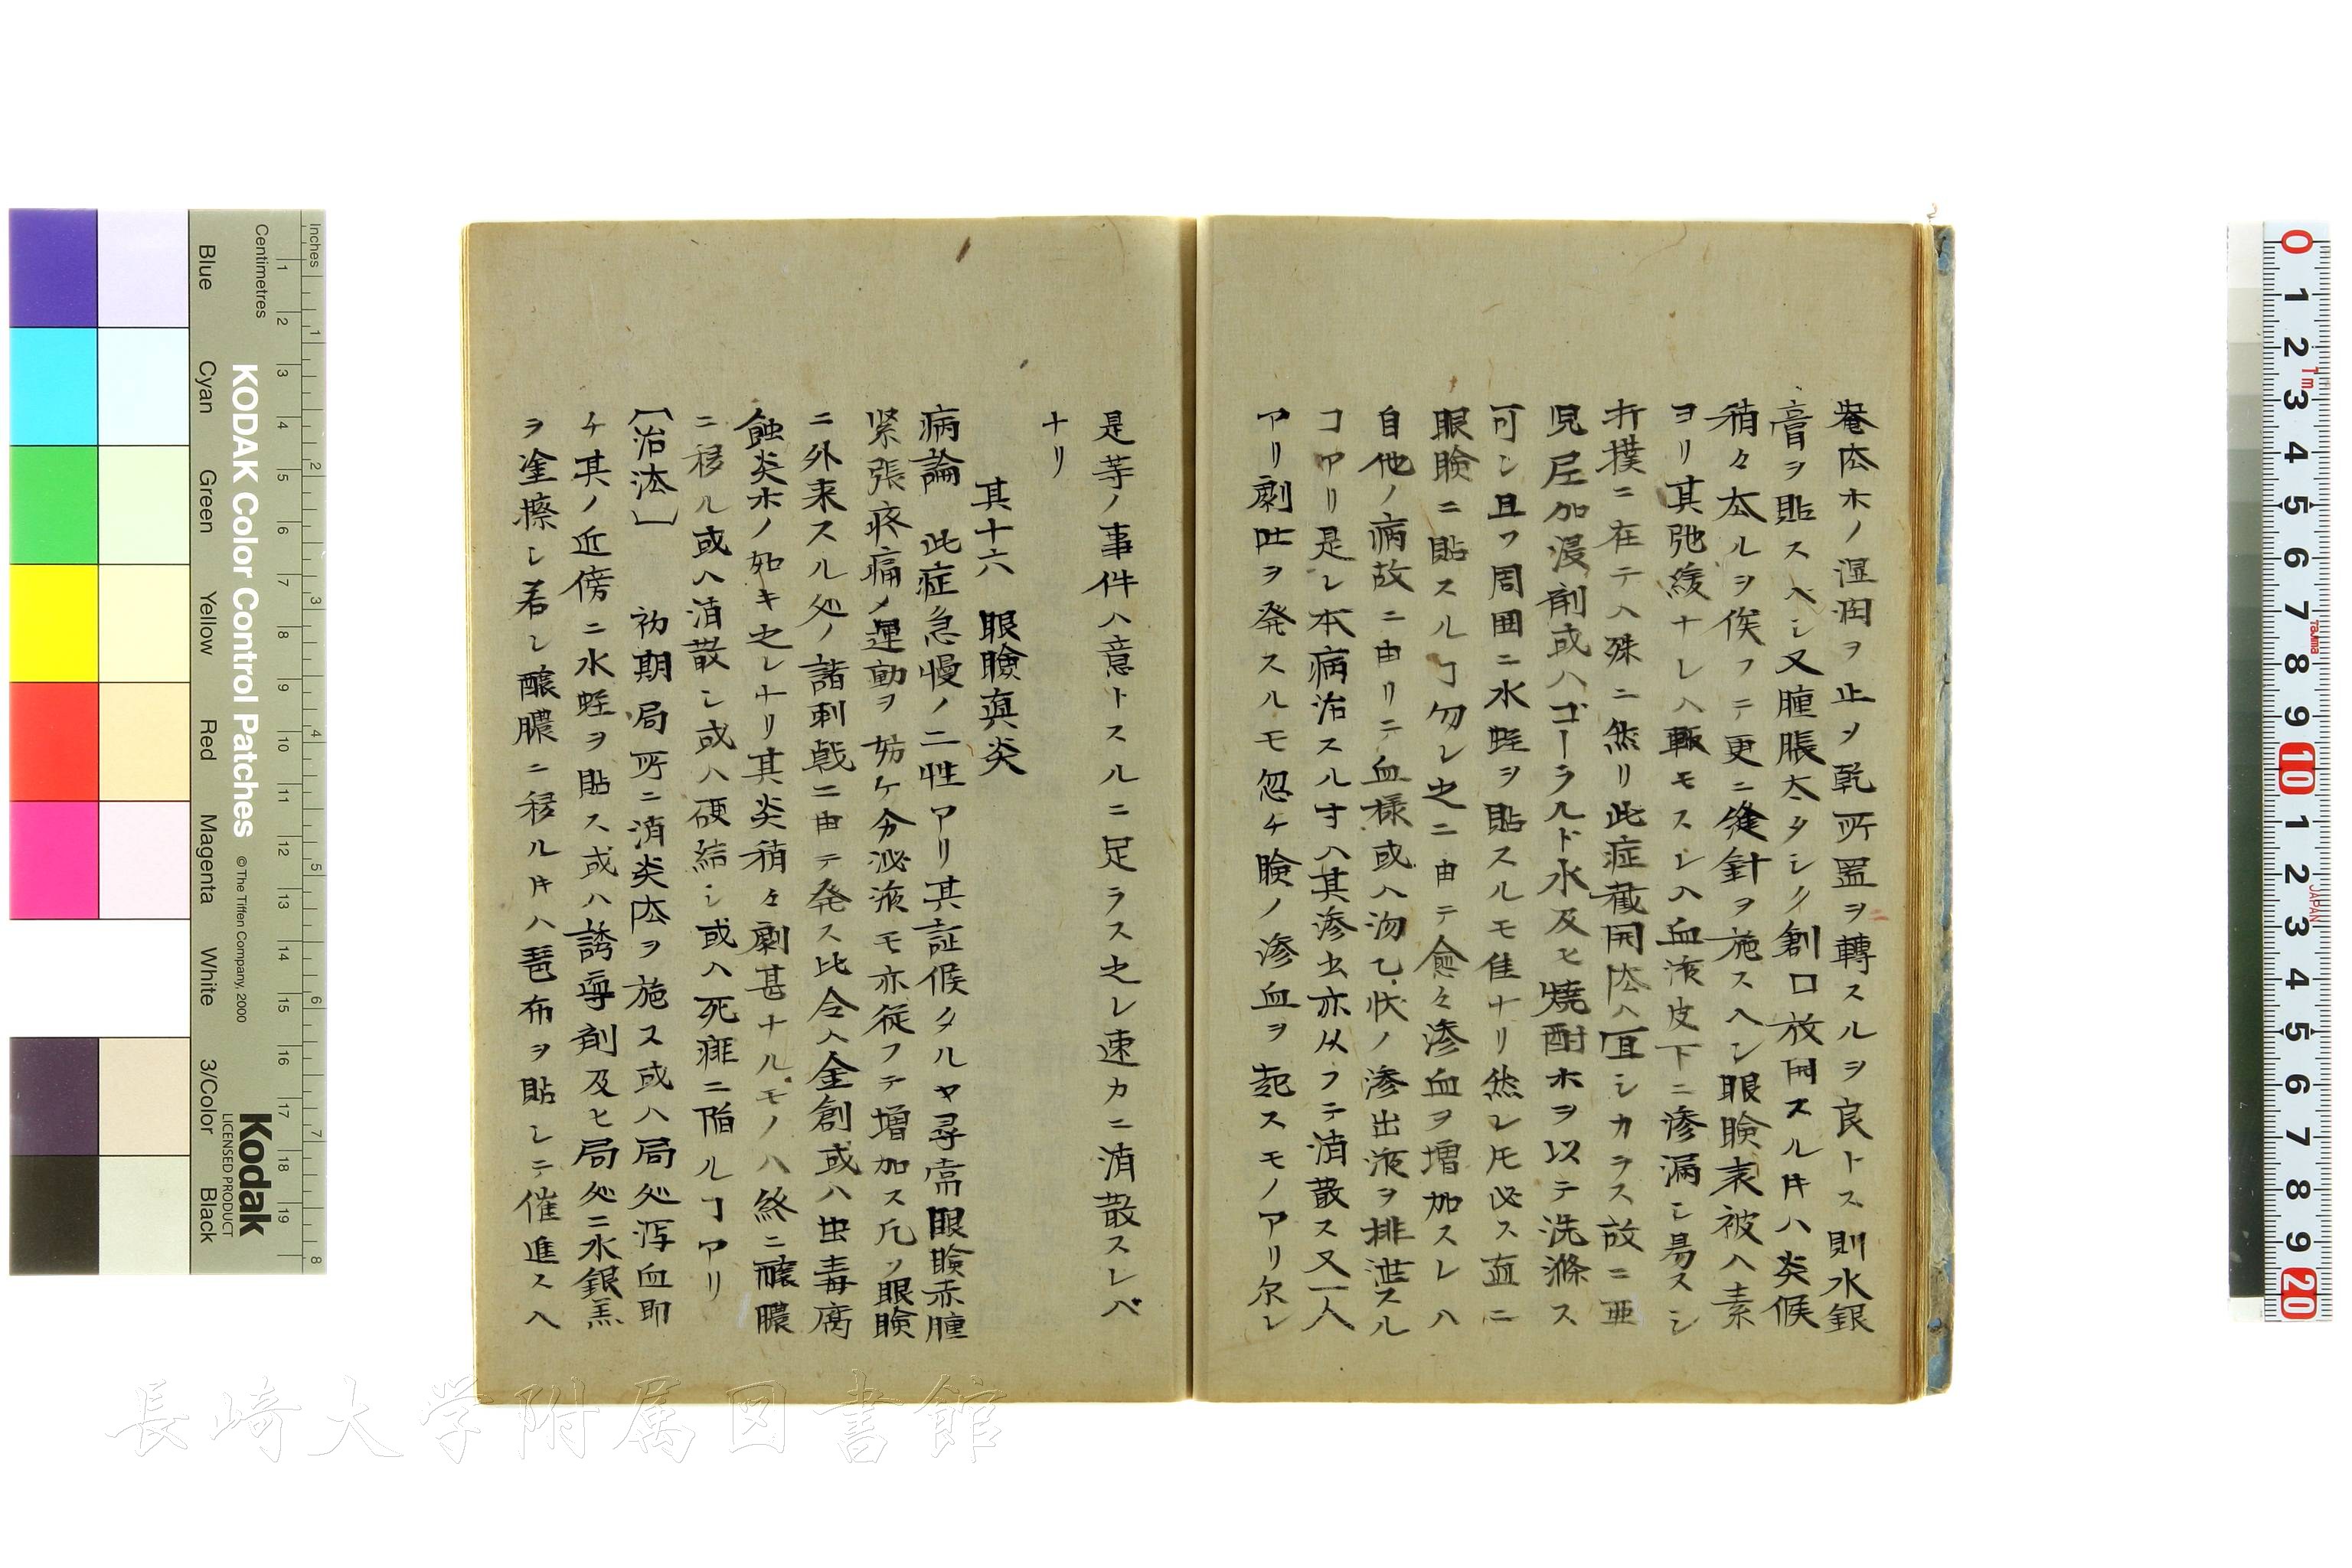 菴法ホノ湿潤ヲ止メ乾所置ヲ轉スルヲ良トス則水銀
膏ヲ貼スヘシ又腫脹太タシク創口放開スルㇳキハ炎候
稍々太ルヲ俟フテ更ニ縫針ヲ施スヘシ眼瞼表被ハ素
ヨリ其弛緩ナレハ輙モスレハ血液皮下ニ滲漏シ易スシ
打撲ニ在テハ殊ニ然リ此症截開法ハ宜シカラス故ニ亜
児尼加浸剤或ハゴーラルド水及ヒ焼酎ホヲ以テ洗滌ス
可シ且ツ周囲ニ水蛭ヲ貼スルモ佳ナリ然レ𪜈必ス直ニ
眼瞼ニ貼スルヿ勿レ之ニ由テ愈々滲血ヲ増加スレハ
自他ノ病故ニ由リテ血様或ハ沕乙状ノ滲出液ヲ排泄スル
コアリ是レ本病治スル寸ハ其滲出亦从フテ消散ス又一人
アリ劇吐ヲ発スルモ忽チ瞼ノ滲血ヲ起スモノアリ尓レ
是等ノ事件ハ意トスルニ足ラス之レ速カニ消散スレバ
ナリ
其十六 眼瞼真炎
病論 此症急慢ノ二性アリ其証候タルヤ尋常眼瞼赤腫
緊張疼痛ノ運動ヲ妨ケ分泌液モ亦従フテ増加ス凡ソ眼瞼
ニ外来スル処ノ諸刺戟ニ由テ発ス比令ハ金創或ハ虫毒腐
蝕炎ホノ如キ之レナリ其炎稍々劇甚ナルモノハ終ニ醸膿
ニ移ル或ハ消散シ或ハ硬結シ或ハ死痱ニ陥ルヿアリ
〔治法〕 初期局所ニ消炎法ヲ施ス或ハ局処瀉血即
チ其ノ近傍ニ水蛭ヲ貼ス或ハ誘導剤及ヒ局処ニ水銀羔
ヲ塗擦シ若シ醸膿ニ移ルㇳキハ琶布ヲ貼シテ催進スヘ
KODAK Color Control Patches
© The Tiffen Company, 2000
Kodak
LICENSED PRODUCT
Inches 1 2 3 4 5 6 7 8
Centimetres 1 2 3 4 5 6 7 8 9 10 11 12 13 14 15 16 17 18 19
Blue Cyan Green Yellow Red Magenta White 3/Color Black
0 1 2 3 4 5 6 7 8 9 10 1 2 3 4 5 6 7 8 9 20
1m TaJima JAPAN
長崎大学附属図書館